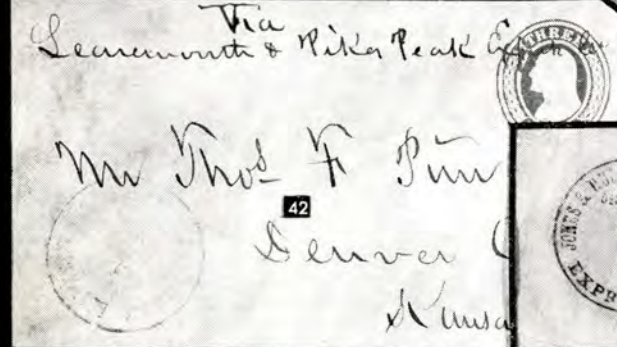 Via
Leavenworth & Pikes Peak Express
Mr Thos F
42
Denver C
Kansa
THREE
JONES &
EXPR